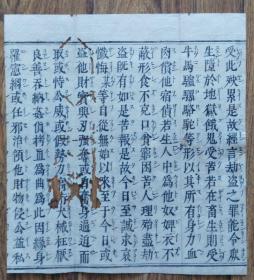 受此殃累是故經言劫盜之罪能令眾
生墮於地獄餓鬼受苦若在畜生則受
牛馬驢騾駱駝等形以其所有身力血
肉償他宿債若生人中為他奴婢衣不
蔽形食不充口貧窮困苦人理殆盡劫
盜既有如是苦報是故今日至誠求哀
懺悔某等自從無始以來至于今日或
盜他財物興刃強奪或自恃身逼迫而
取或恃公威或假勢力高桁大械枉厭
良善吞納姦貨拷直為曲為此因緣身
罹憲網或任邪治領他財物侵公益私